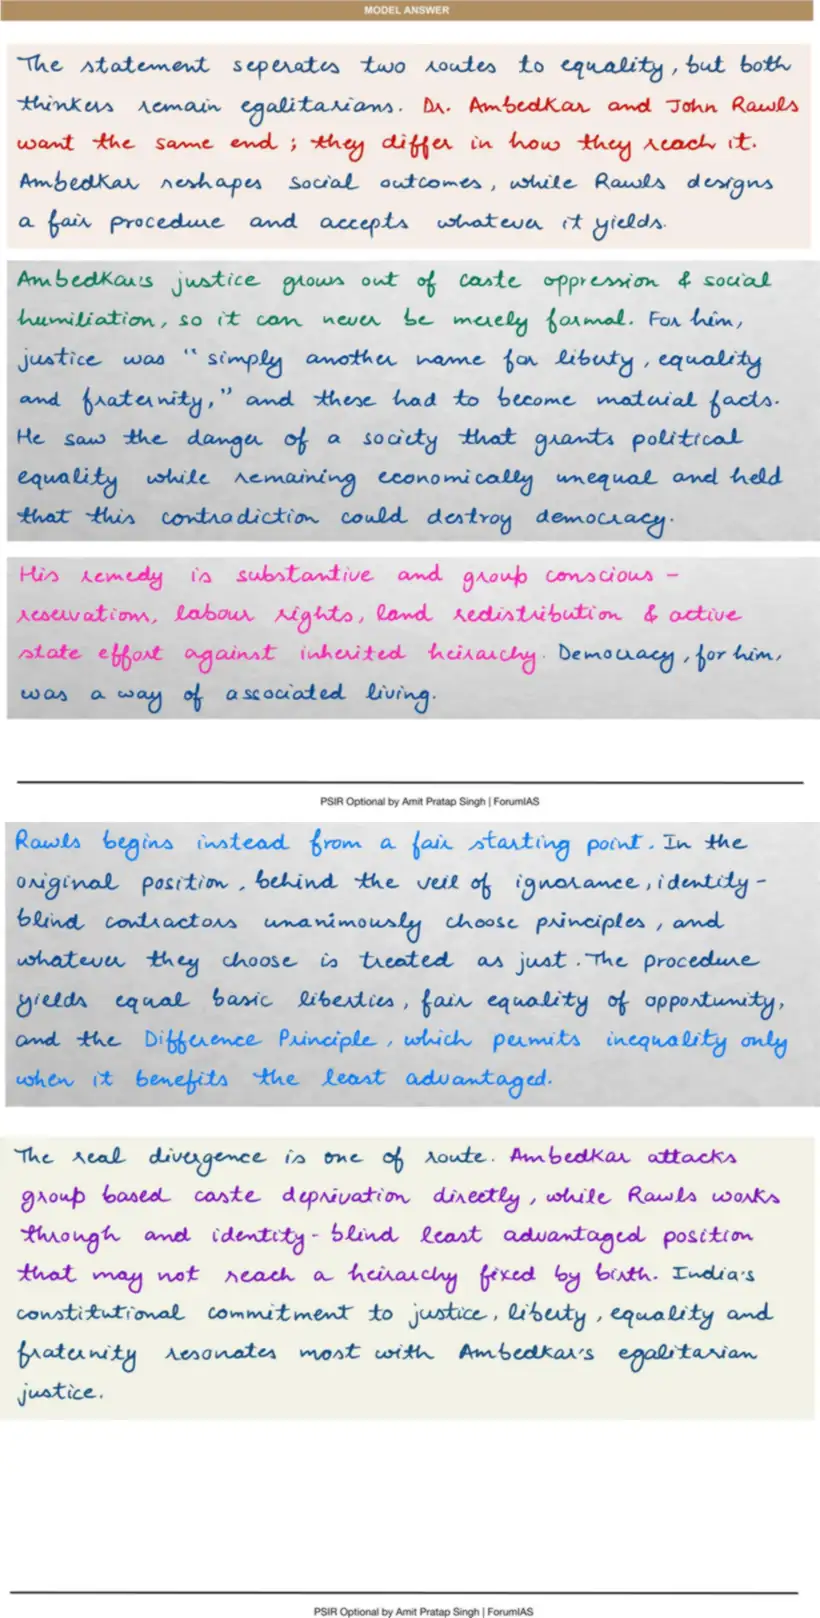 MODEL ANSWER
The statement seperates two routes to equality, but both
thinkers remain egalitarians. Dr. Ambedkar and John Rawls
want the same end; they differ in how they reach it.
Ambedkar reshapes social outcomes, while Rawls designs
a fair procedure and accepts whatever it yields.
Ambedkar's justice grows out of caste oppression & social
humiliation, so it can never be merely formal. For him,
justice was "simply another name for liberty, equality
and fraternity," and these had to become material facts.
He saw the danger of a society that grants political
equality while remaining economically unequal and held
that this contradiction could destroy democracy.
His remedy is substantive and group conscious –
reservations, labour rights, land redistribution & active
state effort against inherited heirarchy. Democracy, for him,
was a way of associated living.
PSIR Optional by Amit Pratap Singh | ForumIAS
Rawls begins instead from a fair starting point. In the
original position, behind the veil of ignorance, identity-
blind contractors unanimously choose principles, and
whatever they choose is treated as just. The procedure
yields equal basic liberties, fair equality of opportunity,
and the Difference Principle, which permits inequality only
when it benefits the least advantaged.
The real divergence is one of route. Ambedkar attacks
group based caste deprivation directly, while Rawls works
through and identity-blind least advantaged position
that may not reach a heirarchy fixed by birth. India's
constitutional commitment to justice, liberty, equality and
fraternity resonates most with Ambedkar's egalitarian
justice.
PSIR Optional by Amit Pratap Singh | ForumIAS